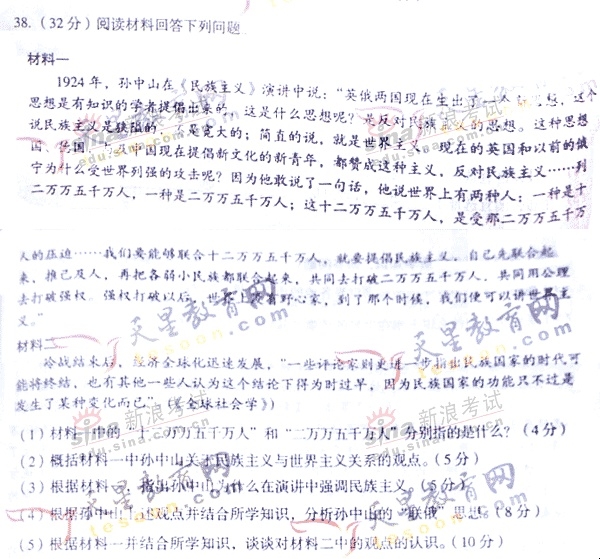 38.（32分）阅读材料回答下列问题
材料一
1924年，孙中山在《民族主义》演讲中说：“英俄两国现在生出了一个 思想，这个
思想是有知识的学者提倡出来的，这是什么思想呢？是反对民族主义的思想。这种思想
说民族主义是狭隘的 是宽大的；简直的说，就是世界主义，现在的英国和以前的俄
国、德国 中国现在提倡新文化的新青年，都赞成这种主义，反对民族主义……列
宁为什么受世界列强的攻击呢？因为他敢说了一句话，他说世界上有两种人：一种是十
二万万五千万人，一种是二万万五千万人；这十二万万五千万人，是受那二万万五千万
人的压迫……我们要能够联合十二万万五千万人，就要提倡民族主义，自己先联合起
来，推己及人，再把各弱小民族都联合起来，共同去打破二万万五千万人，共同用公理
去打破强权。强权打破以后，世界上没有野心家，到了那个时候，我们便可以讲世界主
义。”
材料二
冷战结束后，经济全球化迅速发展，“一些评论家则更进一步指出民族国家的时代可
能将终结，也有其他一些人认为这个结论下得为时过早，因为民族国家的功能只不过是
发生了某种变化而已”（《全球社会学》）
（1）材料一中的“十二万万五千万人”和“二万万五千万人”分别指的是什么？（4分）
（2）概括材料一中孙中山关于民族主义与世界主义关系的观点。（5分）
（3）根据材料一，指出孙中山为什么在演讲中强调民族主义。（5分）
（4）根据孙中山上述观点并结合所学知识，分析孙中山的“联俄”思想。（8分）
（5）根据材料一并结合所学知识，谈谈对材料二中的观点的认识。（10分）
天星教育网
tesoon.com
新浪考试
edu.sina.com